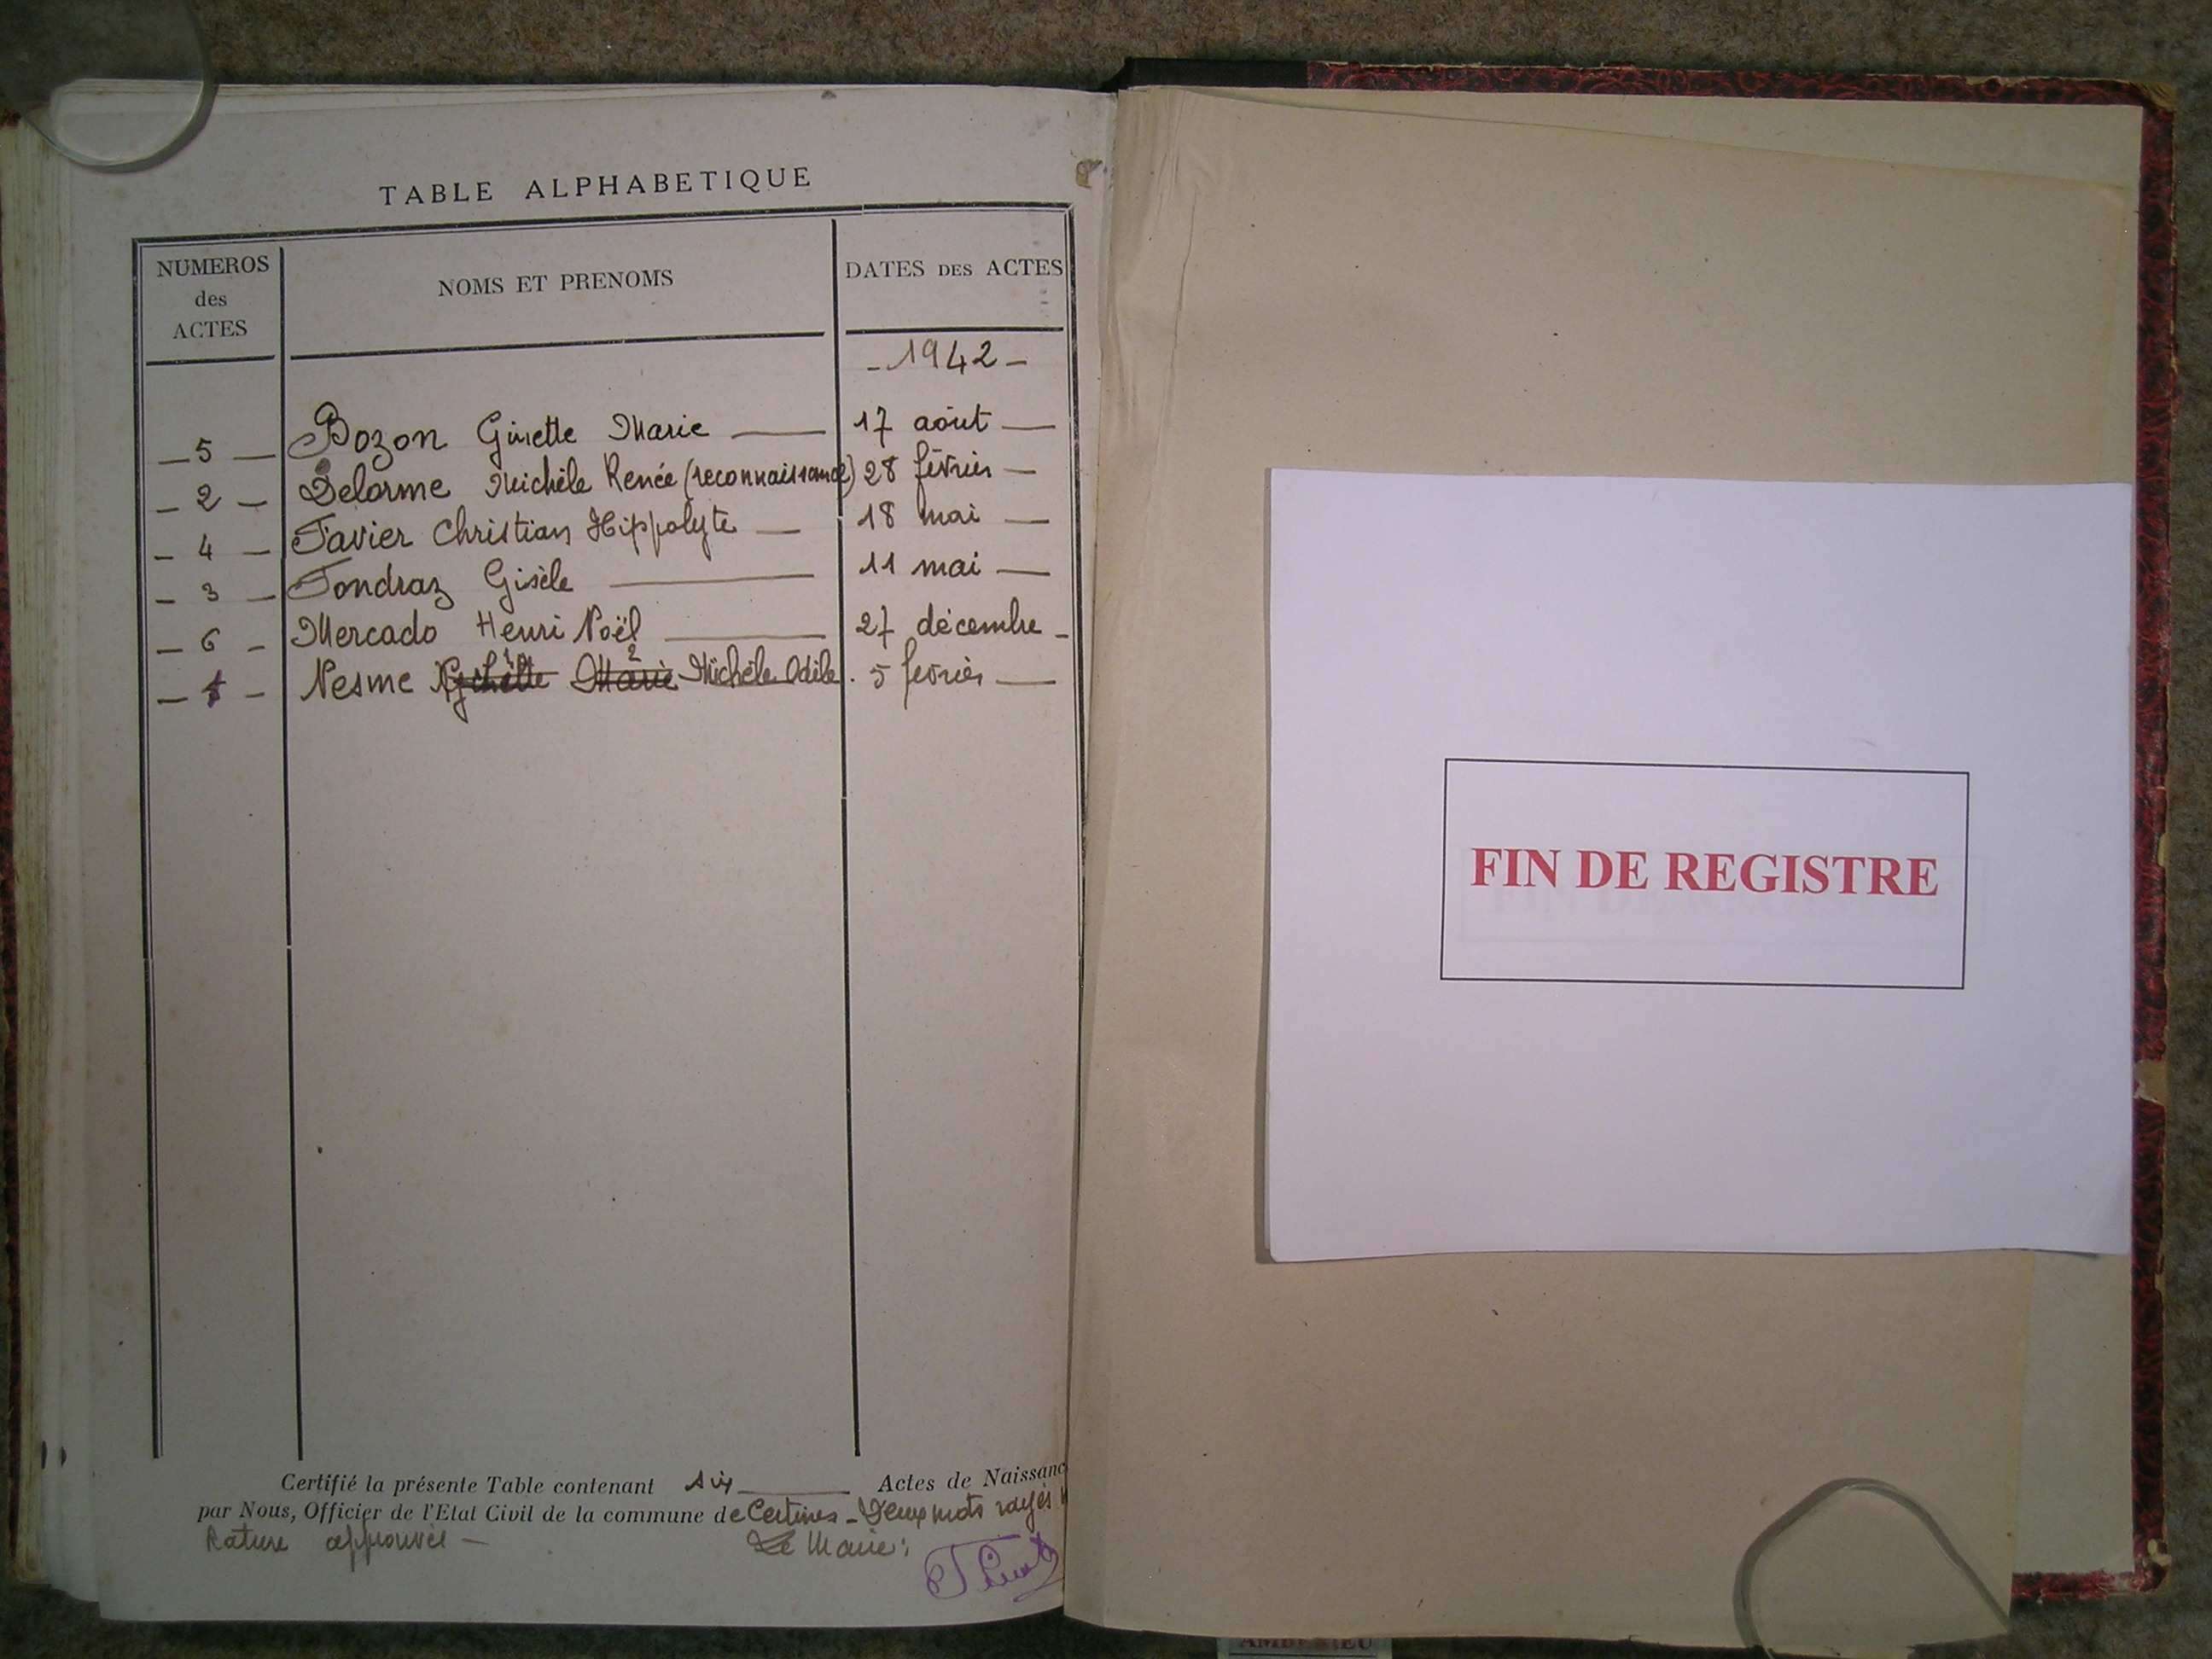 TABLE ALPHABETIQUE
NUMEROS des ACTES
NOMS ET PRENOMS
DATES DES ACTES
- 1942 -
- 5 - Bozon Ginette Marie — 17 août —
- 2 - Delorme Michèle Renée (reconnaissance) 28 février —
- 4 - Favier Christian Hippolyte — 18 mai —
- 3 - Fondraz Gisèle — 11 mai —
- 6 - Mercado Henri Noël — 27 décembre -
- 1 - Nesme Marie Michèle Odile. 5 février —
Certifié la présente Table contenant six — Actes de Naissanc
par Nous, Officier de l'Etat Civil de la commune de Certines - Deux mots rayés
Rature approuvée - Le Maire :
FIN DE REGISTRE